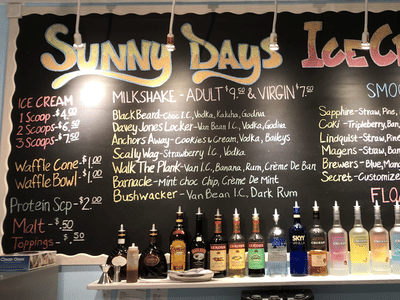 Sunny Days Ice
ICE CREAM
1 Scoop - $4.00
2 Scoops - $6.50
3 Scoops - $7.50
Waffle Cone - $1.00
Waffle Bowl - $1.00
Protein Scp - $2.00
Malt - $.50
Toppings - $.50
MILKSHAKE - ADULT $9.50 & VIRGIN $7.00
Black Beard - Choc I.C., Vodka, Kaluha, Godiva
Davey Jones Locker - Van Bean I.C., Vodka, Godiva
Anchors Away - Cookies & Cream, Vodka, Baileys
Scally Wag - Strawberry I.C., Vodka
Walk The Plank - Van I.C., Banana, Rum, Crème De Ban
Barnacle - Mint Choc Chip, Crème De Mint
Bushwacker - Van Bean I.C., Dark Rum
SMOO
Sapphire - Straw, Pine,
Coki - Tripleberry, Ban,
Lindquist - Straw, Pine
Magens - Straw, Ban
Brewers - Blue, Man
Secret - Customize
FLO
SKYY
VODKA